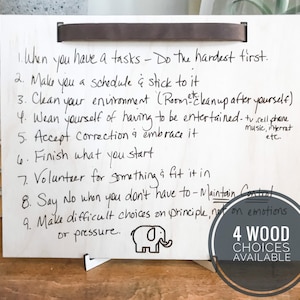 1. When you have a tasks – Do the hardest first.
2. Make you a schedule & stick to it
3. Clean your environment (Room etc cleanup after yourself)
4. Wean yourself of having to be entertained. tv cell phone
music, internet
etc.
5. Accept Correction & embrace it
6. Finish what you start
7. Volunteer for something & fit it in
8. Say No when you don't have to – Maintain Control
9. Make difficult choices on principle, not on emotions
or pressure.
4 WOOD
CHOICES
AVAILABLE